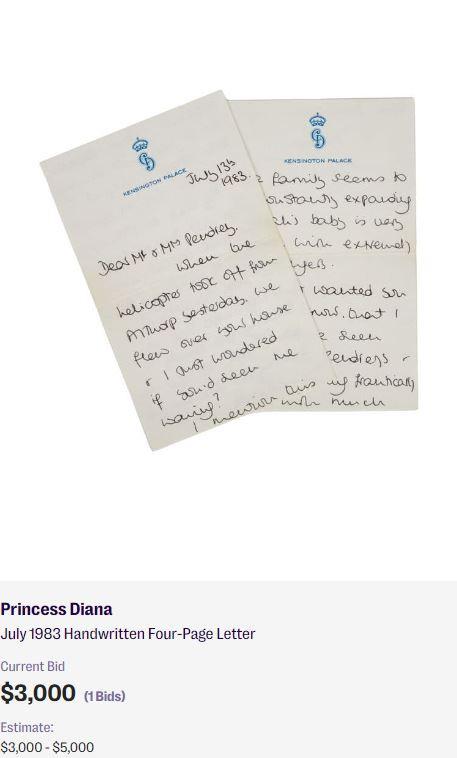 KENSINGTON PALACE
July 13th
1983.
Dear Mr & Mrs Pendrey,
When the
helicopter took off from
Althorp yesterday, we
flew over your house
& I just wondered
if you'd seen me
waving?
I mention this
KENSINGTON PALACE
family seems to
constantly expanding
this baby is very
with extremely
wanted
now. that I
seen
Pendreys &
frantically
with much
Princess Diana
July 1983 Handwritten Four-Page Letter
Current Bid
$3,000 (1 Bids)
Estimate:
$3,000 - $5,000